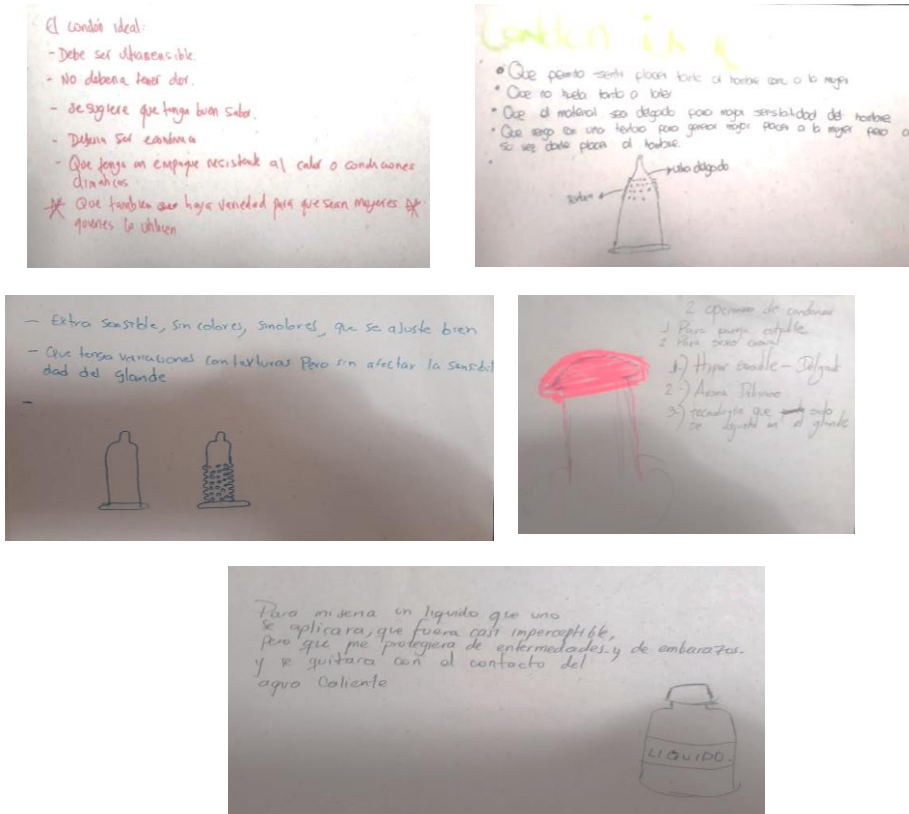 El condón ideal:
- Debe ser ultrasensible.
- No debería tener olor.
- se sugiere que tenga buen sabor.
- Debería ser económico
- Que tenga un empaque resistente al calor o condiciones
climáticas
* Que también haya variedad para que sean mujeres *
quienes lo utilicen
Condón
• Que permita sentir placer tanto al hombre como a la mujer
• Que no huela tanto a latex
• Que el material sea delgado para mayor sensibilidad del hombre
• Que venga con una textura para generar mayor placer a la mujer pero a
su vez darle placer al hombre.
muy delgado
textura
- Extra sensible, sin colores, sin olores, que se ajuste bien
- Que tenga variaciones con texturas Pero sin afectar la sensibili
dad del glande
-
2 opciones de condones
1 Para pareja estable
2 Para sexo casual
1-) Hiper sensible - Delgado
2-) Aroma
3-) tecnología que solo
se ajusta en el glande
Para mi seria un liquido que uno
se aplicara, que fuera casi imperceptible,
pero que me protegiera de enfermedades y de embarazos.
y se quitara con el contacto del
agua Caliente
LIQUIDO.